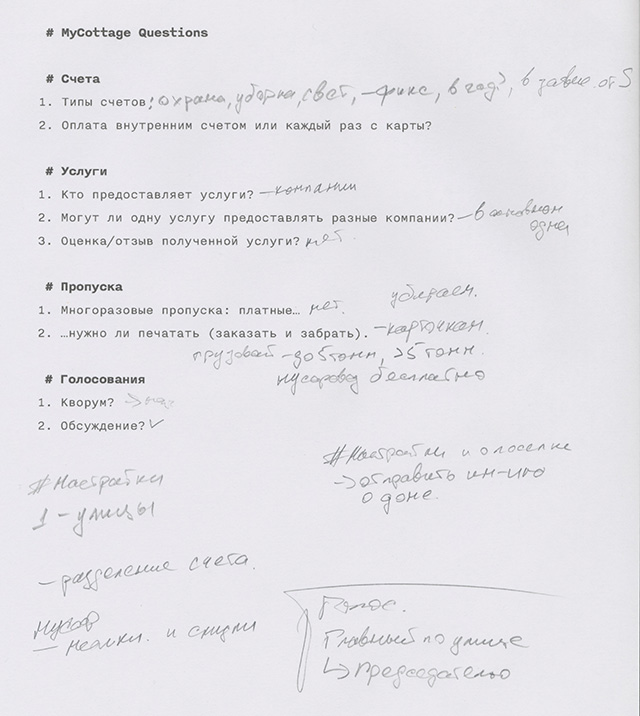 # MyCottage Questions
# Счета
1. Типы счетов: охрана, уборка, свет, – фикс, в год?, в завис. от S
2. Оплата внутренним счетом или каждый раз с карты?
# Услуги
1. Кто предоставляет услуги? – компании
2. Могут ли одну услугу предоставлять разные компании? – в основном одна
3. Оценка/отзыв полученной услуги? нет.
# Пропуска
1. Многоразовые пропуска: платные… нет. убираем.
2. …нужно ли печатать (заказать и забрать). – карточкам.
грузовой – до 5 тонн, >5 тонн.
мусоровоз бесплатно
# Голосования
1. Кворум? →
2. Обсуждение? ✓
# Настройки и о поселке
→ отправить ин-ию
о доме.
# Настройки
1 – улицы
– разделение счета.
мусор
– и скидки
Голос.
Главный по улице
↳ председатель